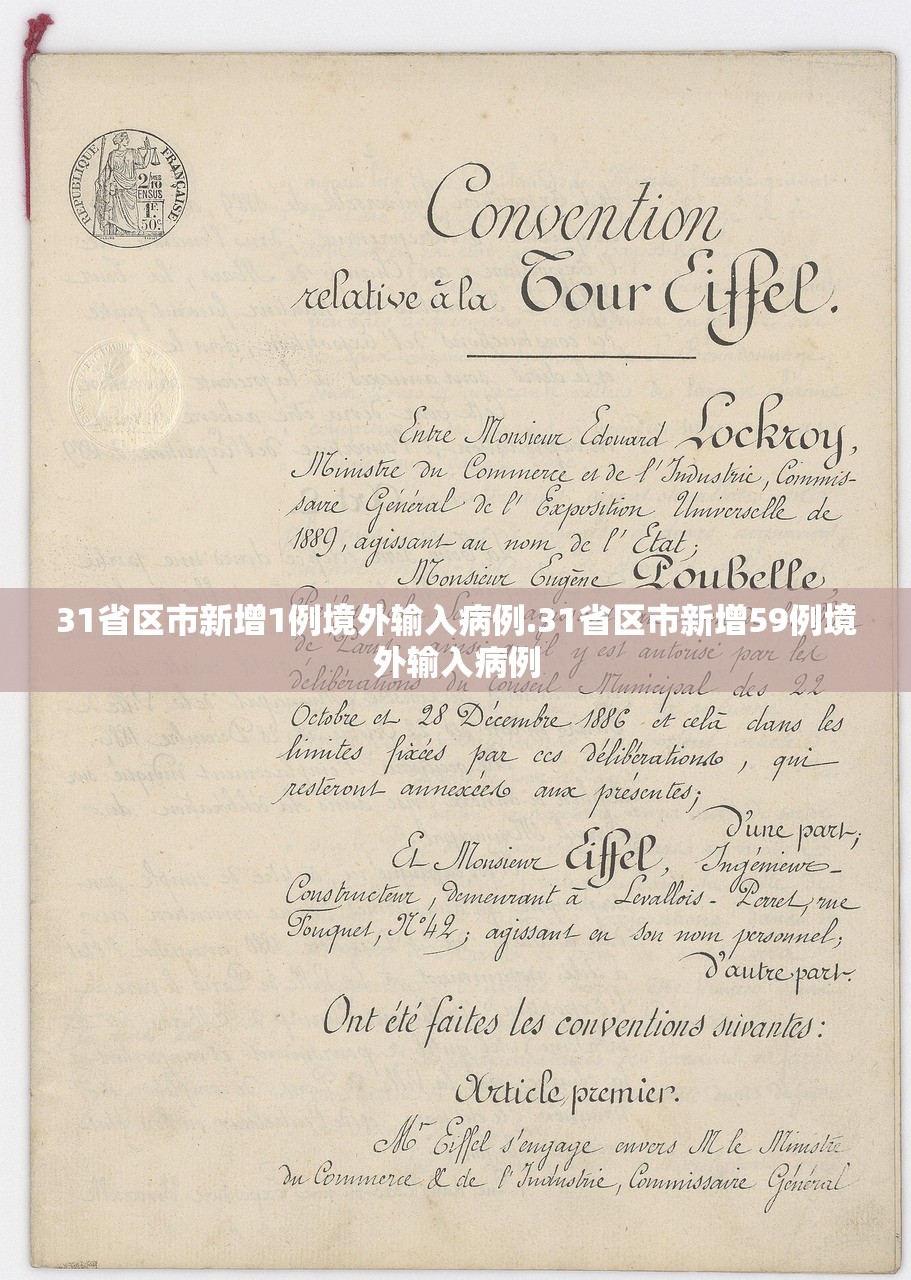 RÉPUBLIQUE FRANÇAISE
2/10
EN SUS
1F.
50c
Convention
relative à la Tour Eiffel.
Entre Monsieur Edouard Lockroy,
Ministre du Commerce et de l'Industrie, Commis-
saire Général de l'Exposition Universelle de
1889, agissant au nom de l'Etat;
Monsieur Eugène Poubelle,
31省区市新增1例境外输入病例.31省区市新增59例境
de Paris, y est autorisé par les
外输入病例
délibérations du Conseil Municipal des 22
Octobre et 28 Décembre 1886 et celà dans les
limites fixées par ces délibérations, qui
resteront annexées aux présentes;
D'une part;
Et Monsieur Eiffel, Ingénieur-
Constructeur, demeurant à Levallois-Perret, rue
Fouquet, N°42; agissant en son nom personnel;
D'autre part.
Ont été faites les conventions suivantes:
Article premier.
Mr Eiffel s'engage envers M le Ministre
du Commerce & de l'Industrie, Commissaire Général